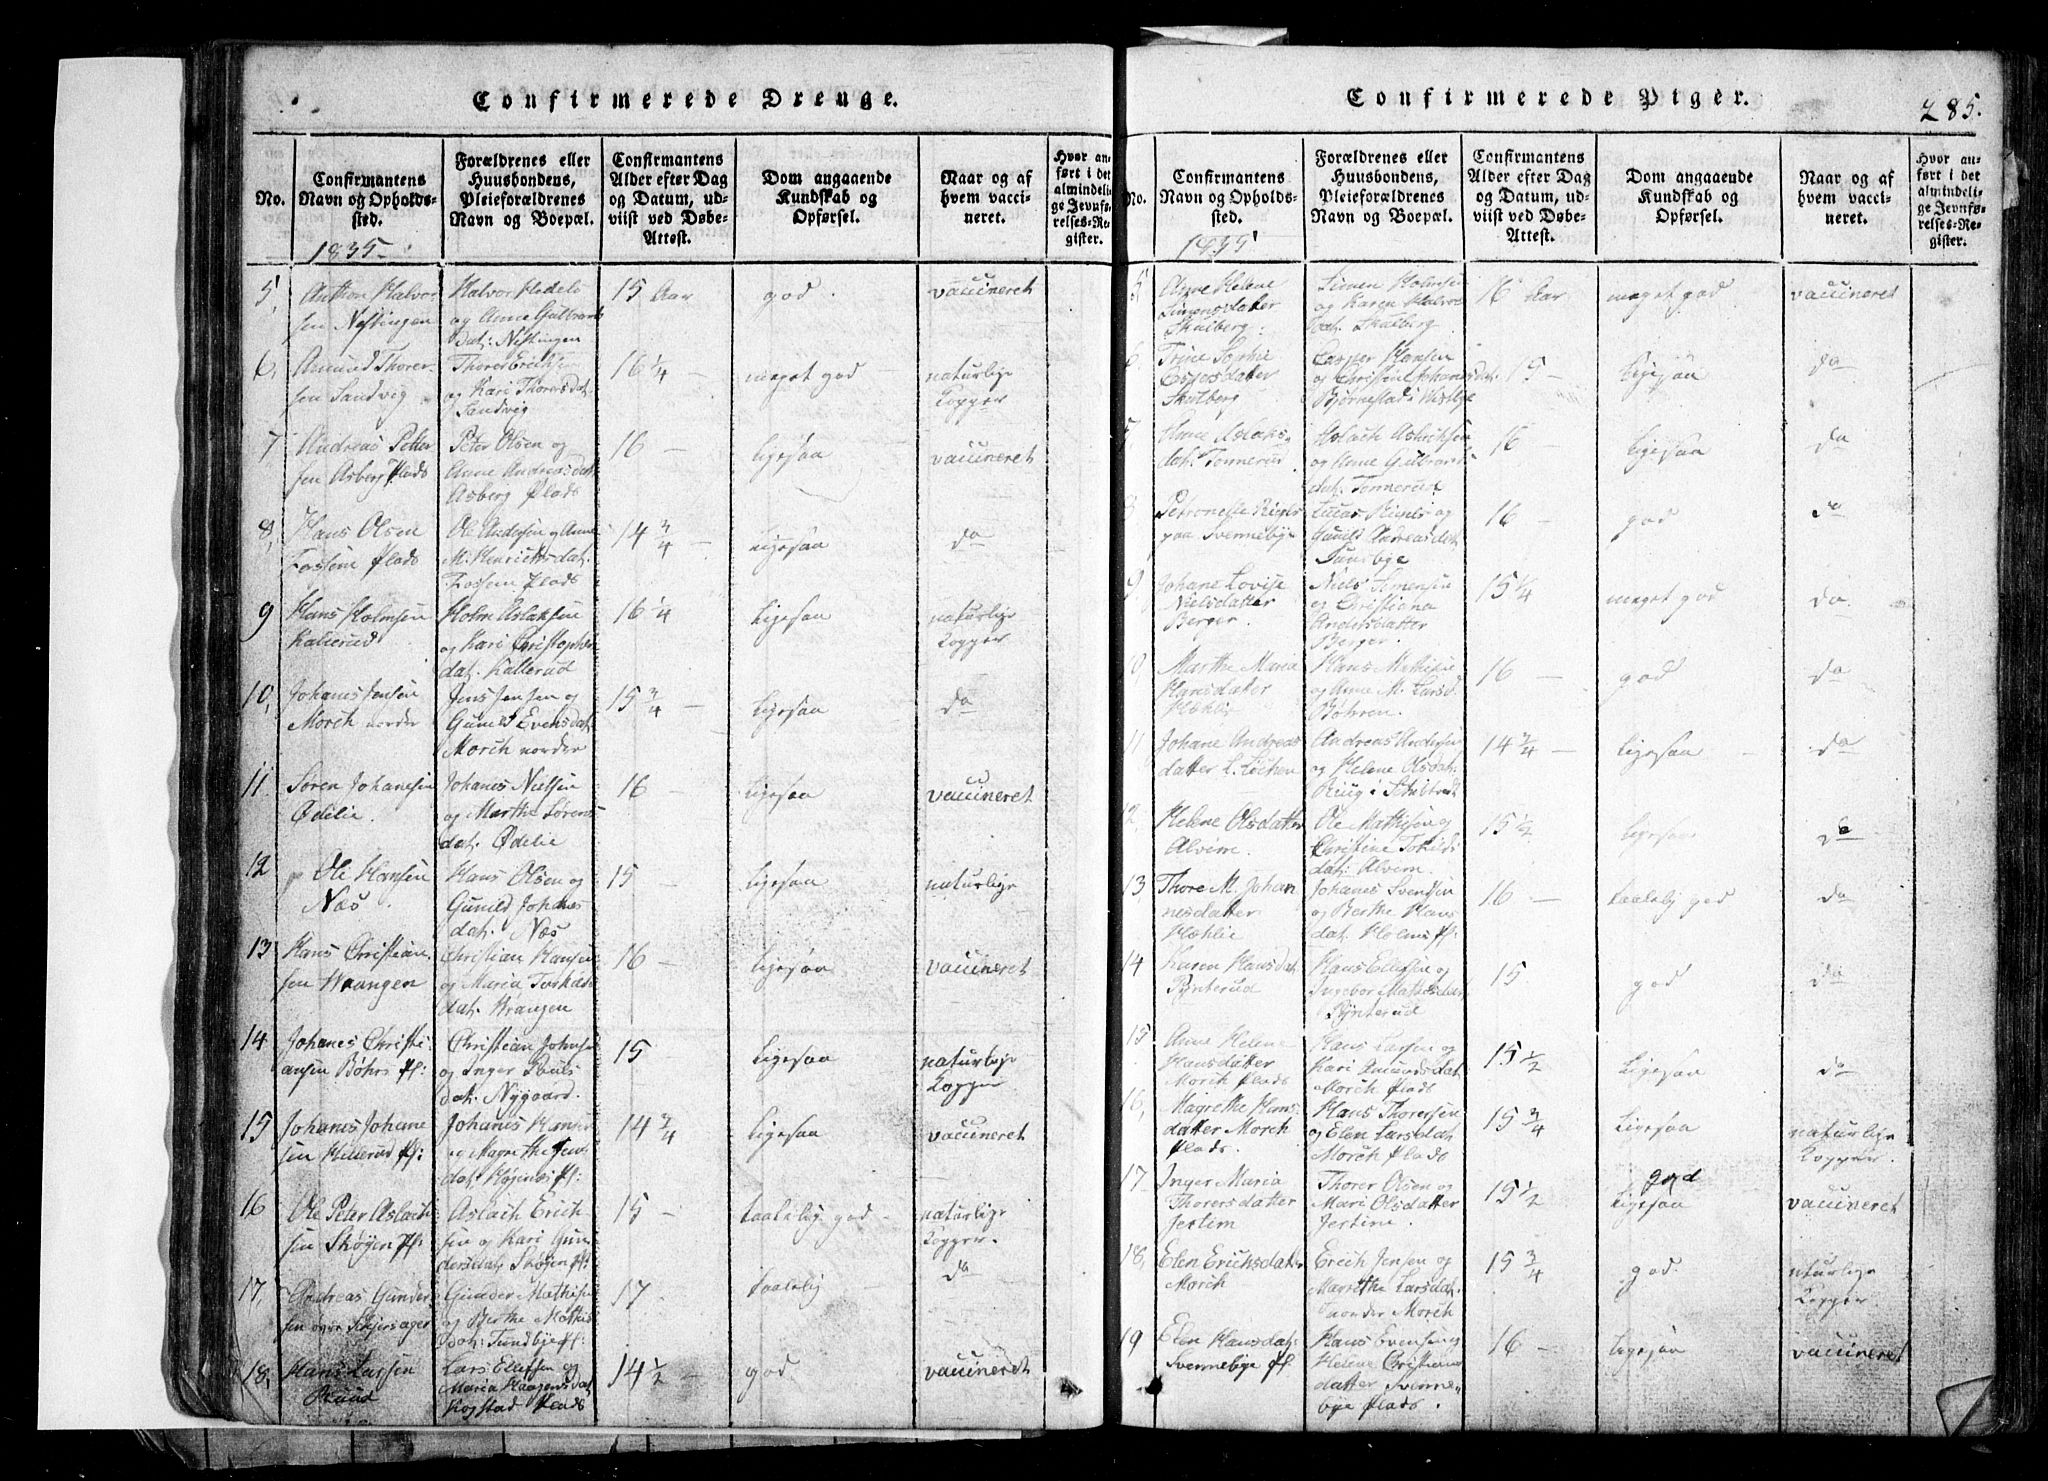 Confirmerede Drenge.
No.
Confirmantens
Navn og Opholds-
sted.
1835
Forældrenes eller
Huusbondens,
Pleieforældrenes
Navn og Boepæl.
Confirmantens
Alder efter Dag
og Datum, ud-
viist ved Døbe-
Attest.
Dom angaaende
Kundskab og
Opførsel.
Naar og af
hvem vacci-
neret.
Hvor an-
ført i det
almindeli-
ge Jevnfø-
relses-Re-
gister.
5,
Anthon Halvor-
sen Nestingen
Halvor
og Anne Gulbrands
Dat: Nestingen
15 Aar
god.
vaccineret
6,
Amund Thorer-
sen Sandvig
Thorer Erichsen
og Kari Thorersdat.
Sandvig
16 1/4 —
meget god —
naturlige
Kopper
7
Andreas Petter
sen Asberg Plads
Peter Olsen og
Anne Andreasdat
Asberg Plads
16 —
ligesaa
vaccineret
8,
Hans Olsen
Fossem Plads
Ole Andersen og Anne
M. Henrichsdat.
Fossem Plads
14 3/4 —
ligesaa
do
9
Hans Holmsen
Kallerud
Holm Aslaksen
og Kari Christophers
dat. Kallerud
16 1/4 —
ligesaa
naturlige
Kopper
10,
Johanes Jensen
Morch norder
Jens Jensen og
Gunild Evensdat.
Morch nordre
15 3/4 —
ligesaa
do
11
Søren Johanesen
Ødelie.
Johanes Nielsen
og Marthe Sørens
dat. Ødelie
16 —
ligesaa
vaccineret
12
Ole Hansen
Næs
Hans Olsen og
Gunild Johanes
dat. Næs
15 —
ligesaa
naturlige
13
Hans Christian-
sen Wrangen
Christian Hansen
og Maria
dat. Brangen
16 —
ligesaa
vaccineret
14
Johanes Christi-
ansen Böhrs Pl:
Christian Johnsen
og Inger Pouls
dat. Nygaard.
15 —
ligesaa
naturlige
Kopper
15
Johanes Johane
sen Hellerud Pl:
Johanes Hansen
og Magrethe Jens
dat. Højenes Pl:
14 3/4
ligesaa
vaccineret
16
Ole Peter Aslach
sen Skøyen Pl:
Aslach Erich
sen og Kari Gun
dersdat. Skøyen Pl:
15 —
taalelig god —
naturlige
Kopper
17,
Andreas Gunder
sen over Skjersager
Gunder Mathisen
og Berthe Mathis
Dat: Tundbye Pl:
17 -
taalelig
do
18,
Hans Larsen
Ruud
Lars Ellefsen og
Maria Haagensdat
Kogstad Plads
14 1/2 —
god
vaccineret
Confirmerede Piger.
285.
No.
Confirmantens
Navn og Opholds-
sted.
1835
Forældrenes eller
Huusbondens,
Pleieforældrenes
Navn og Boepæl.
Confirmantens
Alder efter Dag
og Datum, ud-
viist ved Døbe-
Attest.
Dom angaaende
Kundskab og
Opførsel.
Naar og af
hvem vacci-
neret.
Hvor an-
ført i det
almindeli-
ge Jevnfø-
relses-Re-
gister.
5
Anne Helene
Simensdatter
Skulberg.
Simen Holmsen
og Karen Halvors
dat. Skulberg
16 Aar
meget god
vaccineret
6
Trine Sophie
Caspersdatter
Skulberg
Casper Hansen
og Christine Johanesdat.
Bjørnestad i Næs
15 —
ligesaa
do
7
Anne Aslaks-
dat. Tonnerud
Aslach
og Anne Gulbrands
dat. Tonnerud
16 —
ligesaa
do
8
Petronelle
paa Svennebye
og
Gunild Andreasdat
Tundbye
16 —
god
do
9
Johane Lovise
Nielsdatter
Berger.
Niels Simensen
og Christiana
Andersdatter
Berger.
15 1/4
meget god
do.
10
Marthe Maria
Hansdatter
Hæhlie
Hans Mathisen
og Anne M. Larsd.
Böhren.
16 —
god
do
11
Johane Andreas
datter
Andreas Andersen
og Helene Olsdat.
14 3/4 —
ligesaa
do
12,
Helene Olsdatter
Alvim.
Ole Mathisen og
Christine
dat. Alvim
15 1/2
ligesaa
do
13
Thore M. Johan
nesdatter
Hæhlie
Johanes Svendsen
og Berthe Hans
dat. Holm Pl:
16 —
taalelig god
do
14
Karen Hansdat.
Rynterud
Hans Ellefsen og
Ingebor
Rynterud
15
god
do
15
Anne Helene
Hansdatter
Morch Plads
Hans Larsen og
Kari Amundsdat
Morch Plads
15 1/2
ligesaa
do
16,
Magrethe Hans-
datter Morch
Plads.
Hans Thorersen
og Elen Larsdat.
Morch Plads
15 3/4
ligesaa
naturlige
Kopper.
17
Inger Maria
Thorersdatter
Jertim
Thorer Olsen og
Mari Olsdatter
Jertim.
15 1/2
god
ligesaa
vaccineret
18,
Elen Erichsdatter
Morch
Erich Jensen og
Magrethe Larsdat.
Morch
15 3/4
god
naturlige
Kopper
19
Elen Hansdat:
Svennebye Pl.
Hans Evensen og
Helene Christians
datter Svenne-
bye Plads.
16 —
ligesaa
vaccineret